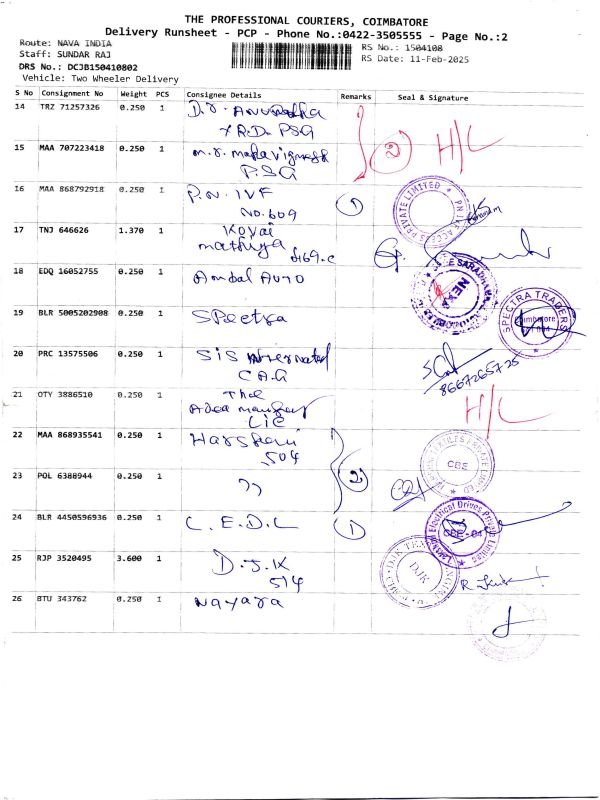 THE PROFESSIONAL COURIERS, COIMBATORE
Delivery Runsheet - PCP - Phone No.:0422-3505555 - Page No.:2
Route: NAVA INDIA
Staff: SUNDAR RAJ
DRS No.: DCJB150410802
Vehicle: Two Wheeler Delivery
RS No.: 1504108
RS Date: 11-Feb-2025
S No Consignment No Weight PCS Consignee Details Remarks Seal & Signature
14 TRZ 71257326 0.250 1 D.r.
R.D. PSG
15 MAA 707223418 0.250 1
P.SG
2 H/C
16 MAA 868792918 0.250 1 P.N. IVF
NO.609
1
PRIVATE LIMITED
17 TNJ 646626 1.370 1 Kovai
18 EDQ 16052755 0.250 1 Ambal AUTO
NEXA
19 BLR 5005202908 0.250 1 Spectra
SPECTRA TRADERS
20 PRC 13575506 0.250 1 SiS
8667265725
21 OTY 3886510 0.250 1 The
Area manager
LIC
H/C
22 MAA 868935541 0.250 1
504
CBE
23 POL 6388944 0.250 1 ??
2
24 BLR 4450596936 0.250 1 L.E.D.L
1
Lakshmi Electrical Drives Private Limited
CBE - 04
25 RJP 3520495 3.600 1 D.J.K
514
DJK
26 BTU 343762 0.250 1 Nayara